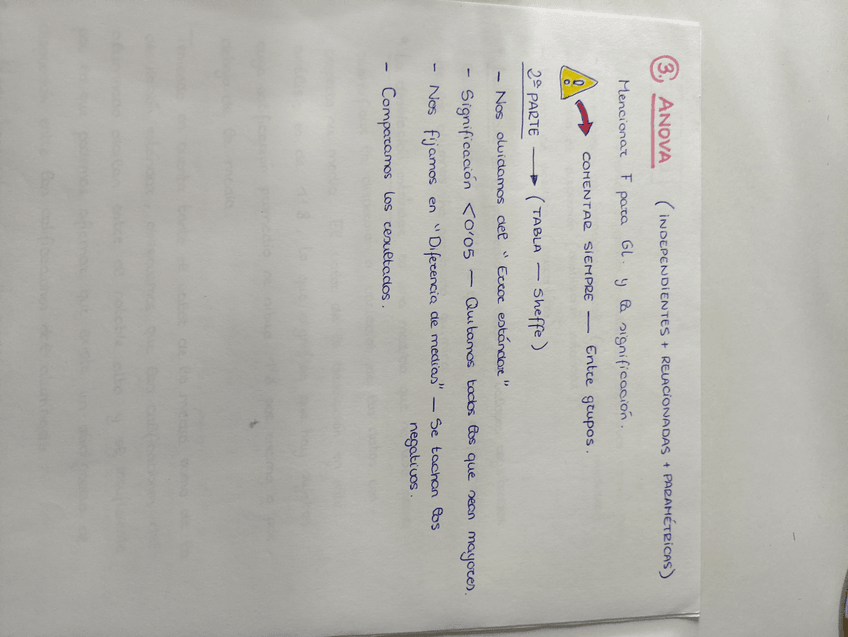 3. ANOVA (INDEPENDIENTES + RELACIONADAS + PARAMÉTRICAS)
Mencionar F para Gl. y la significación.
COMENTAR SIEMPRE — Entre grupos.
2º PARTE → (TABLA — Sheffe)
- Nos olvidamos del "Error estándar"
- Significación <0'05 — Quitamos todos los que sean mayores.
- Nos fijamos en "Diferencia de medias" — Se tachan los
negativos.
- Comparamos los resultados.